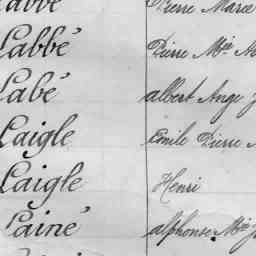 Pierre Marce
Labbé Pierre Mie
Labé albert Ange
Laigle Emile Pierre
Laigle Henri
Lainé alphonse Mie